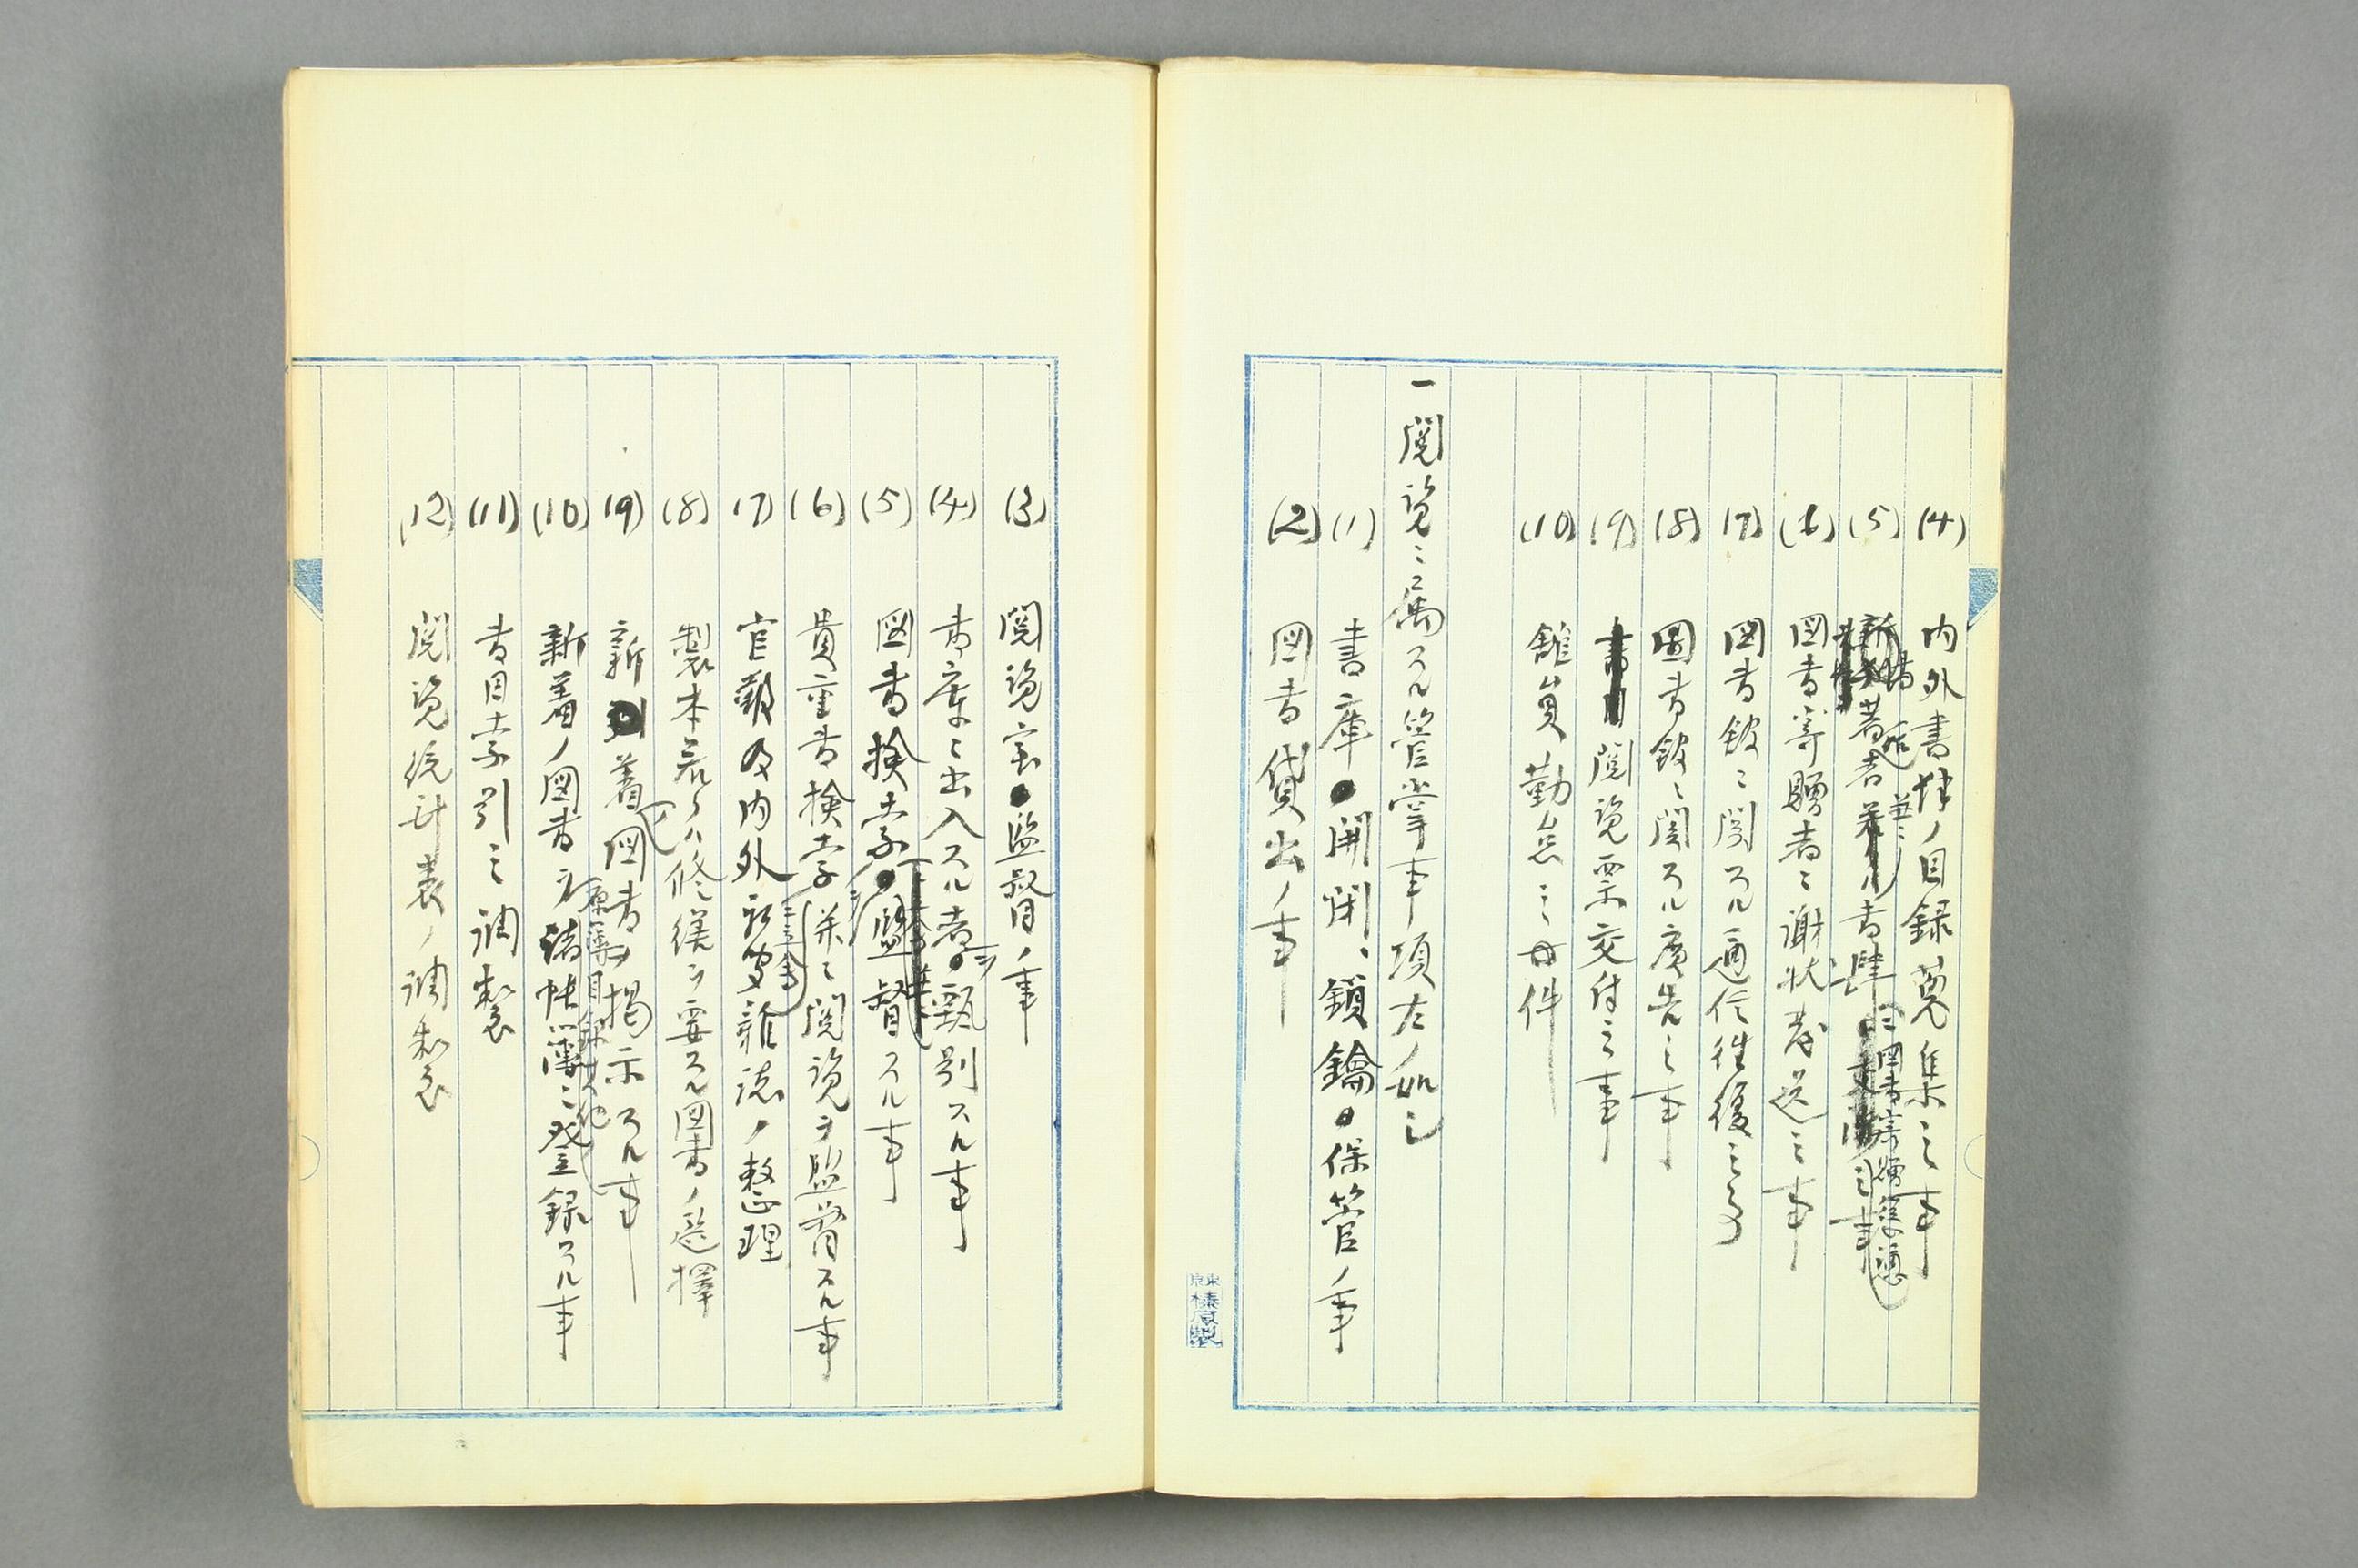 (4) 内外書肆ノ目録蒐集之事
(5) 著者 書肆 図書寄贈
(6) 図書寄贈者ニ謝状発送之事
(7) 図書館ニ関スル通信往復之事
(8) 図書館ニ関スル広告之事
(9) 閲覧票交付之事
(10) 館員ノ勤怠之件
一閲覧ニ属スル管掌事項左ノ如シ
(1) 書庫ノ開閉、鎖鑰ノ保管ノ事
(2) 図書貸出ノ事
東京榛原製
(3) 閲覧室ノ監督ノ事
(4) 書庫ニ出入スル者ヲ甄別スル事
(5) 図書検索ヲ監督スル事
(6) 貴重書検索並ニ閲覧ヲ監督スル事
(7) 官報及内外新聞雑誌ノ整理
(8) 製本若クハ修繕ヲ要スル図書ノ選択
(9) 新着図書ヲ掲示スル事
(10) 新着ノ図書ヲ原簿目録其他諸帳簿ニ登録スル事
(11) 書目索引之調製
(12) 閲覧統計表ノ調製